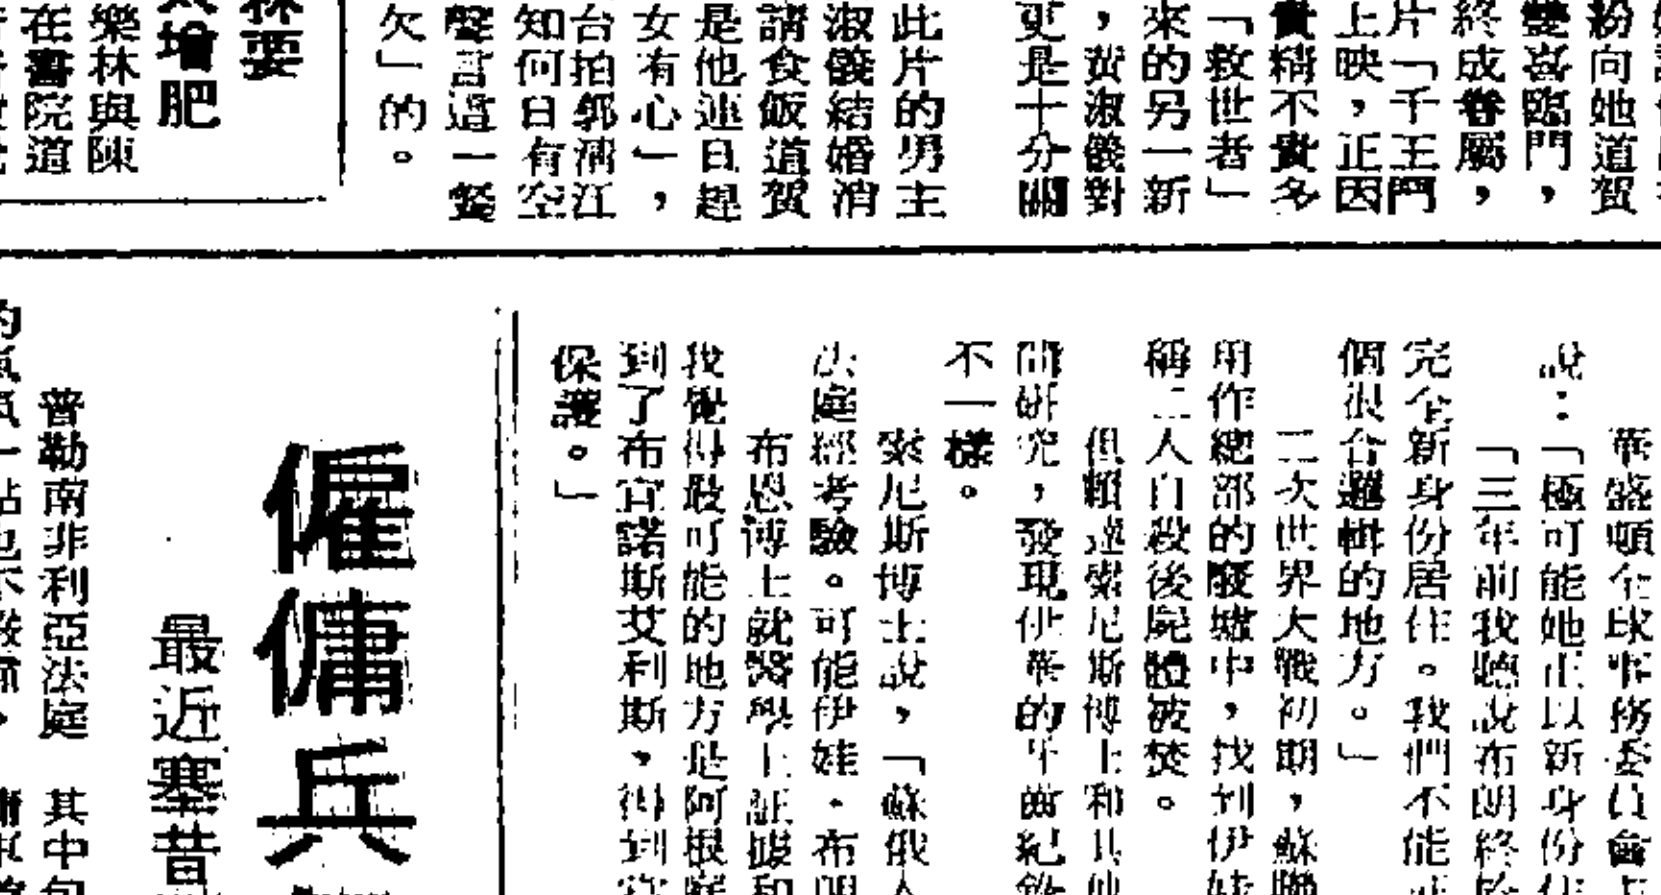 粉向她道賀
雙喜臨門，
終成眷屬，
片「千王鬥
上映，正因
貴精不貴多
「救世者」
來的另一新
，黃淑儀對
更是十分關
此片的男主
淑儀結婚消
請食飯道賀
是他連日趕
女有心」，
台拍郭蒲江
知何日有空
聲言這一餐
欠」的。
林要
增肥
樂林與陳
在書院道
華盛頓全球事務委員會
說：「極可能她正以新身份
「三年前我聽說布朗終
完全新身份居住。我們不能
個很合邏輯的地方。」
二次世界大戰初期，蘇聯
用作總部的廢墟中，找到伊娃
稱二人自殺後屍體被焚。
但賴達索尼斯博士和其他
間研究，發現伊華的牙齒紀錄
不一樣。
索尼斯博士說，「蘇俄人
法庭經考驗。可能伊娃·布朗
布恩博士就醫學上証據和
我覺得最可能的地方是阿根庭
到了布宜諾斯艾利斯，得到
保護。」
僱傭兵
最近塞昔
普勒南非利亞法庭　其中包